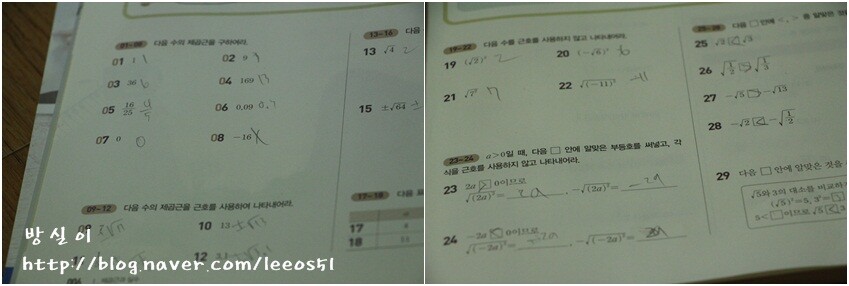 01~08 다음 수의 제곱근을 구하여라.
01 1 1
02 9 3
03 36 6
04 169 13
05 16/25 4/5
06 0.09 0.3
07 0 0
08 -16 X
09~12 다음 수의 제곱근을 근호를 사용하여 나타내어라.
09
10 13 ±√13
12
13~16
13 √4 2
15 ±√64 ±
17~18 다음
17
18
방실이
http://blog.naver.com/leeos51
19~22 다음 수를 근호를 사용하지 않고 나타내어라.
19 (√2)² 2
20 (-√6)² 6
21 √7² 7
22 √(-11)² -11
23~24 a>0일 때, 다음 □ 안에 알맞은 부등호를 써넣고, 각
식을 근호를 사용하지 않고 나타내어라.
23 2a > 0이므로
√(2a)²= 2a , -√(2a)²= -2a
24 -2a < 0이므로
√(-2a)²= , -√(-2a)²=
25~28 다음 □ 안에 <, > 중 알맞은 것
25
26
27 -√5 -√13
28 -√2 < -√1/2
29 다음 □ 안에 알맞은 것을
√5와 3의 대소를 비교하
(√5)²=5, 3²=
5< 이므로 √5 < 3